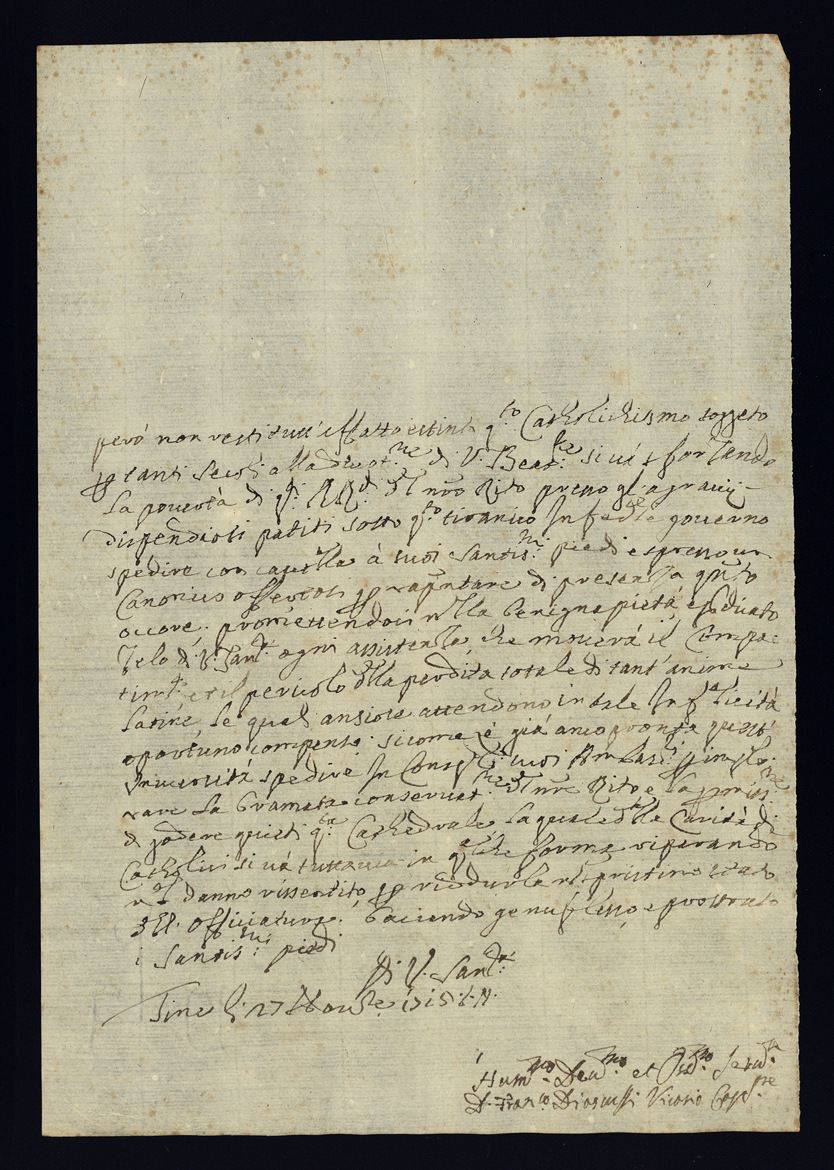 però non resti tutt'affatto estinto q.to Catholichismo soggeto
p tanti secoli alla divot.ne di V. Beat.ne si và sforzando
la povertà di q.i RR.di nro Rito presso gl'agravij
dispendiosi patiti sotto q.to tiranico Infedele governo
spedire con à suoi Santis.mi piedi espresso un
Canonico offertosi p rapntare di presenza q.nto
occore, promettendoci nlla benigna pietà, e
Zelo di V. Sant.tà ogni assistenza, che moverà il Compa
tim.to, e il pericolo dlla perdita totale di tant'anime
latine, le quali ansiose attendono in tale Infelicità
oportuno compenso, sicome è già anco pronta quest'
Università spedire In suoi Ambas.ri p implo
rare la bramata conservat.ne dl nro Rito e la p.miss.ne
di godere quieti q.ta Cathedrale, la quale dlle Carità di
Catholici si và tuttavia in q.lche forma riperando
dl danno rissentito p ridurla nl pristino stato
dll' officiature. baciando genuflesso, e prostrato
i Santis.mi piedi
Di V. Sant.tà
Tine li 27 1715 S.N.
Hum.mo Dev.mo et Obb.mo Serv.re
D. Fran.co Vicario Cap.re